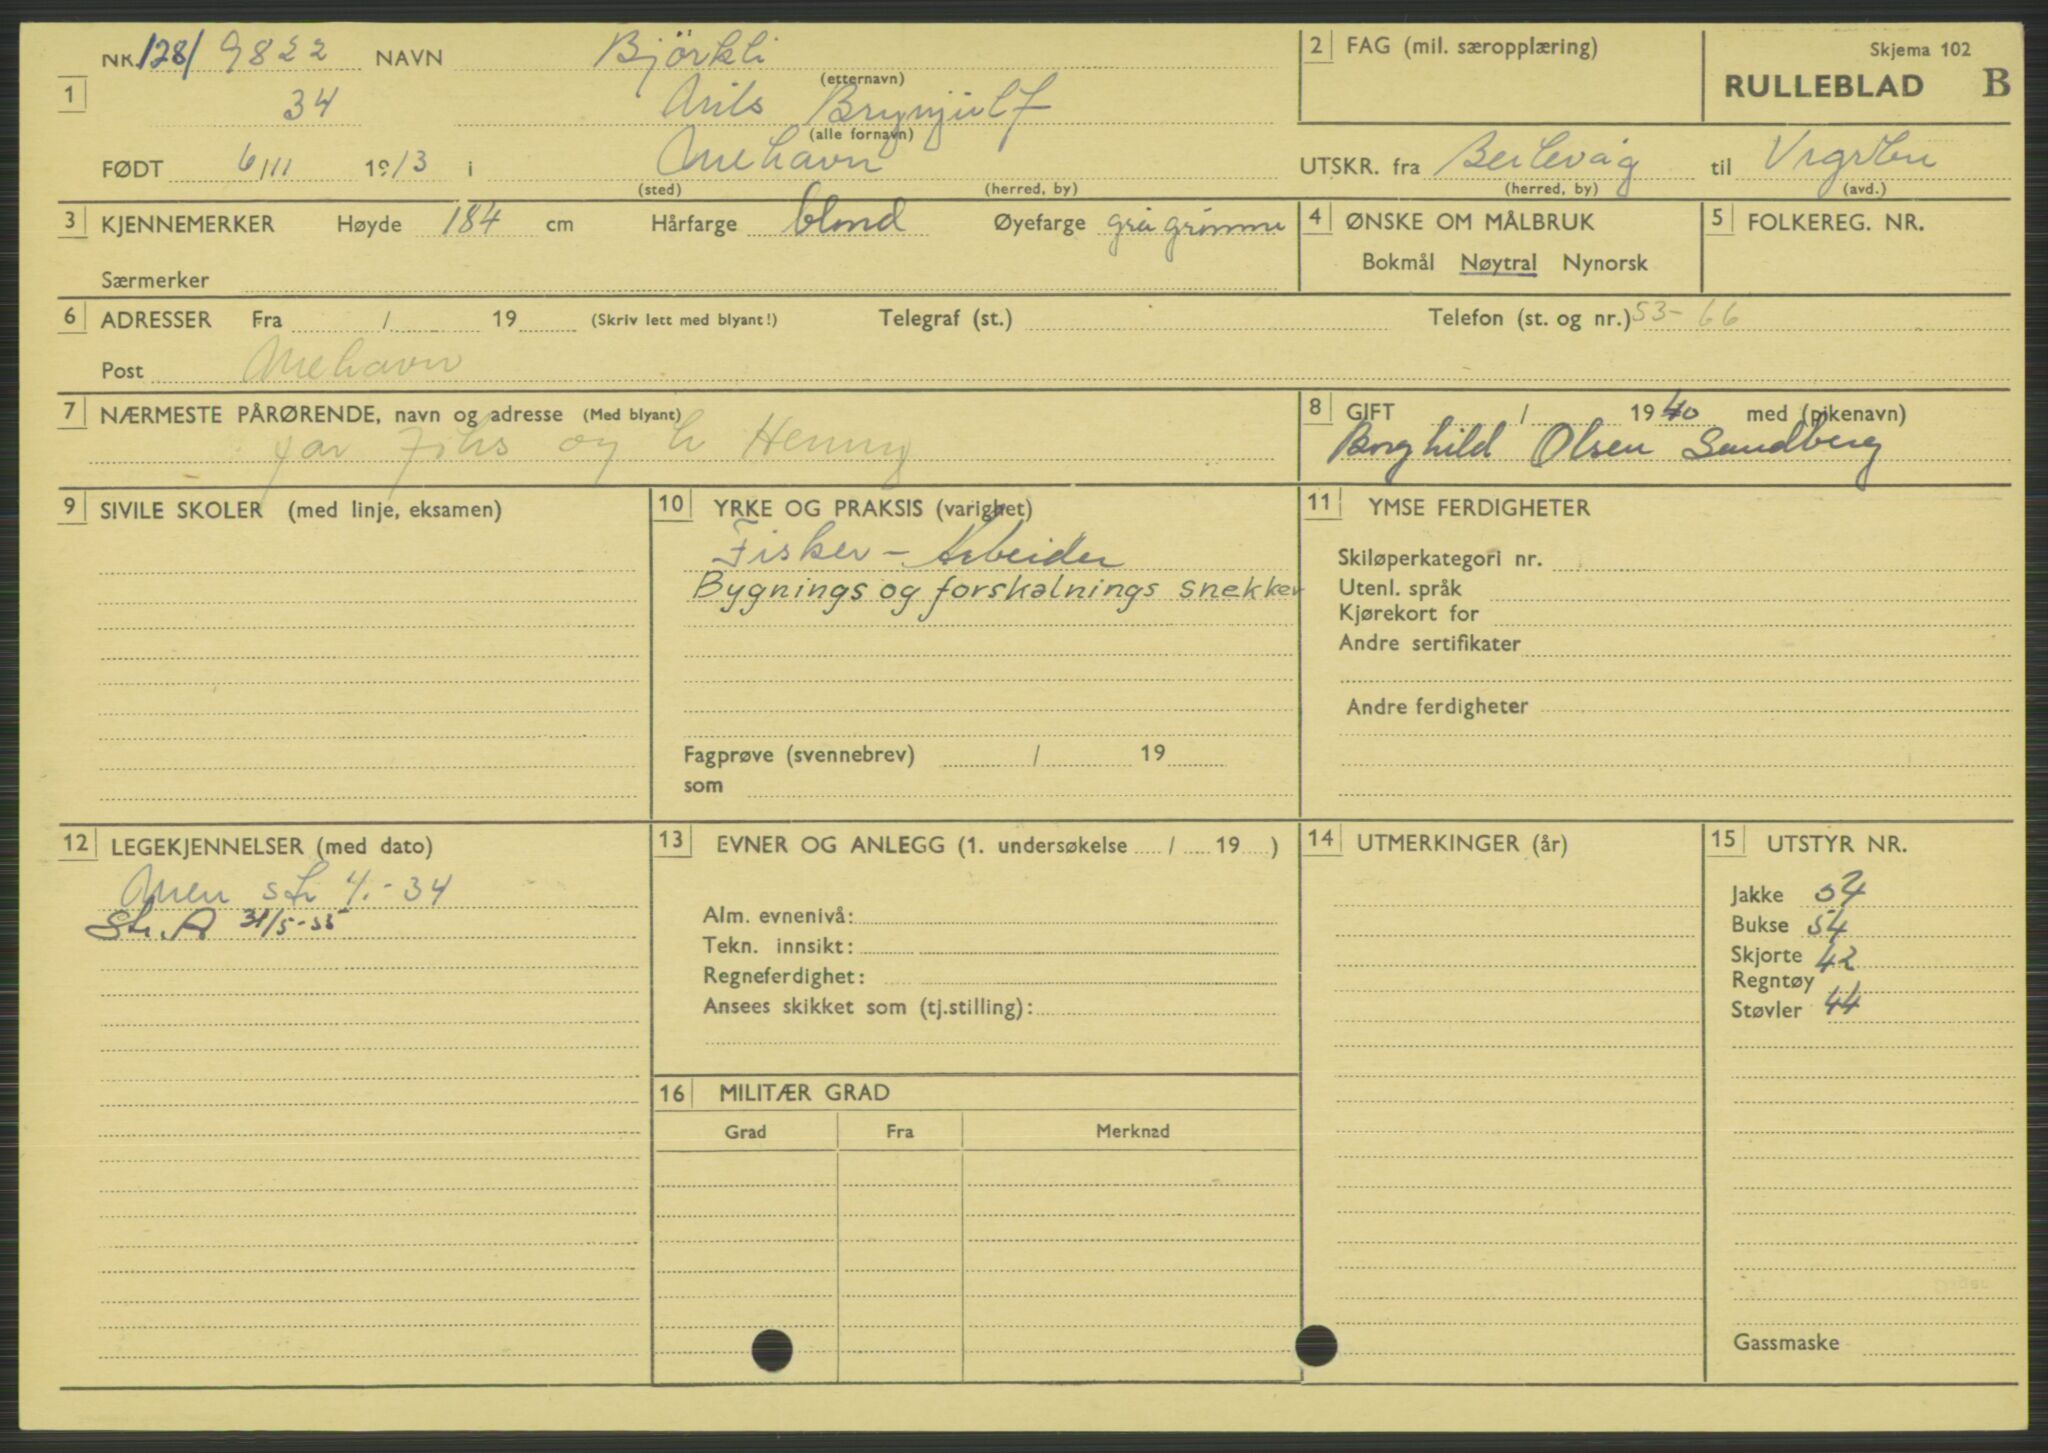 NK. 128/ 9822 NAVN Björkli
(etternavn)
1 34 Nils Brynjulf
(alle fornavn)
FØDT 6/11 1913 i Mehavn
(sted) (herred, by)
2 FAG (mil. særopplæring)
Skjema 102
RULLEBLAD B
UTSKR. fra Berlevåg til
(herred, by) (avd.)
3 KJENNEMERKER Høyde 184 cm Hårfarge blond Øyefarge grå grønne
Særmerker
4 ØNSKE OM MÅLBRUK
Bokmål Nøytral Nynorsk
5 FOLKEREG. NR.
6 ADRESSER Fra / 19 (Skriv lett med blyant!) Telegraf (st.) Telefon (st. og nr.) 53-66
Post Mehavn
7 NÆRMESTE PÅRØRENDE, navn og adresse (Med blyant)
far og h Henny
8 GIFT / 1940 med (pikenavn)
Borghild Olsen Sandberg
9 SIVILE SKOLER (med linje, eksamen)
10 YRKE OG PRAKSIS (varighet)
Fisker - Arbeider
Bygnings og forskalnings snekker
Fagprøve (svennebrev) / 19
som
11 YMSE FERDIGHETER
Skiløperkategori nr.
Utenl. språk
Kjørekort for
Andre sertifikater
Andre ferdigheter
12 LEGEKJENNELSER (med dato)
str 4.-34
Str. A 31/5-55
13 EVNER OG ANLEGG (1. undersøkelse / 19 )
Alm. evnenivå:
Tekn. innsikt:
Regneferdighet:
Ansees skikket som (tj.stilling):
14 UTMERKINGER (år)
15 UTSTYR NR.
Jakke 54
Bukse 54
Skjorte 42
Regntøy
Støvler 44
Gassmaske
16 MILITÆR GRAD
Grad Fra Merknad